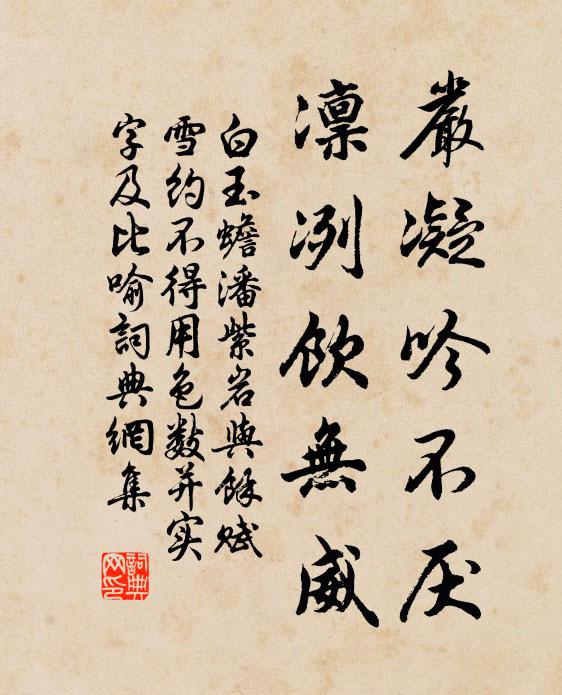 嚴凝吟不厌
凛冽飲無威
白玉蟾潘紫岩與餘赋
雪约不得用色數并实
字及比喻詞典網集
詞典网印